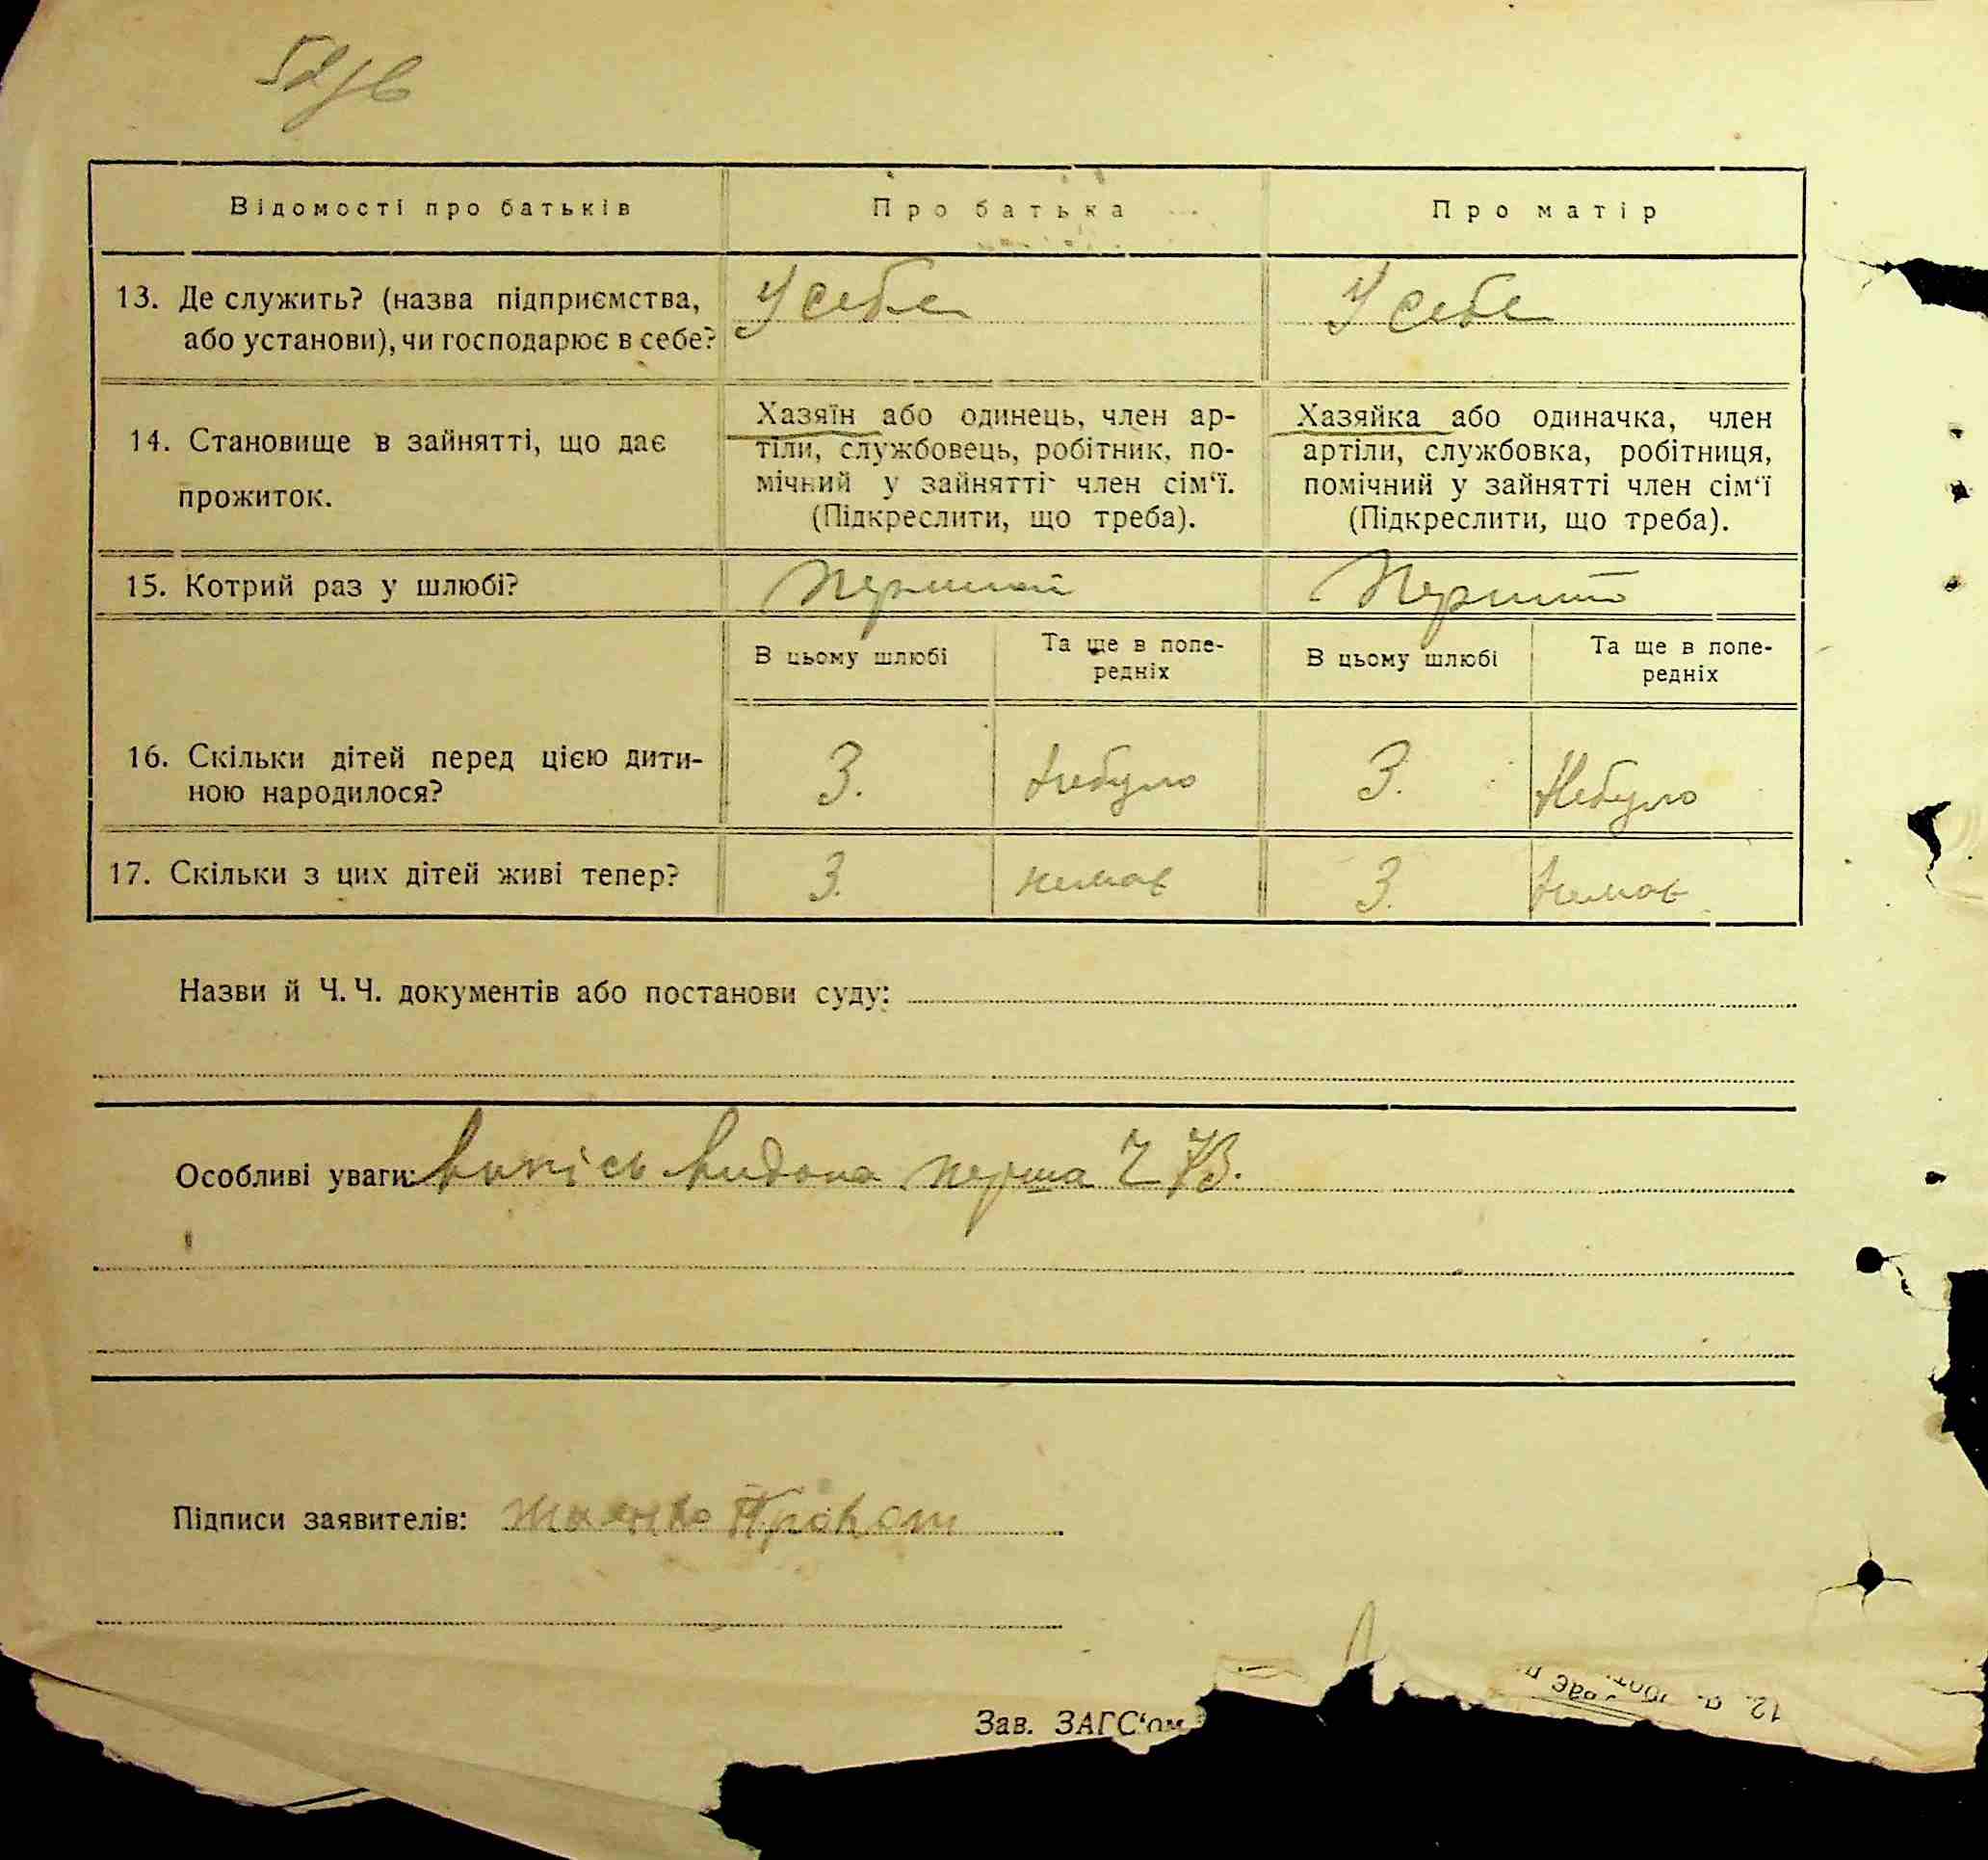 Відомості про батьків
Про батька
Про матір
13. Де служить? (назва підприємства,
або установи), чи господарює в себе?
У себе
У себе
14. Становище в зайнятті, що дає
прожиток.
Хазяїн або одинець, член ар-
тіли, службовець, робітник, по-
мічний у зайнятті член сім'ї.
(Підкреслити, що треба).
Хазяйка або одиначка, член
артіли, службовка, робітниця,
помічний у зайнятті член сім'ї
(Підкреслити, що треба).
15. Котрий раз у шлюбі?
Перший
Перший
В цьому шлюбі
Та ще в попе-
редніх
В цьому шлюбі
Та ще в попе-
редніх
16. Скільки дітей перед цією дити-
ною народилося?
3.
Небуло
3.
Небуло
17. Скільки з цих дітей живі тепер?
3.
немає
3.
немає
Назви й Ч. Ч. документів або постанови суду:
Особливі уваги: Випісь видана перша Ч 73.
Підписи заявителів: Прокоп
Зав. ЗАГС'ом
12. а.